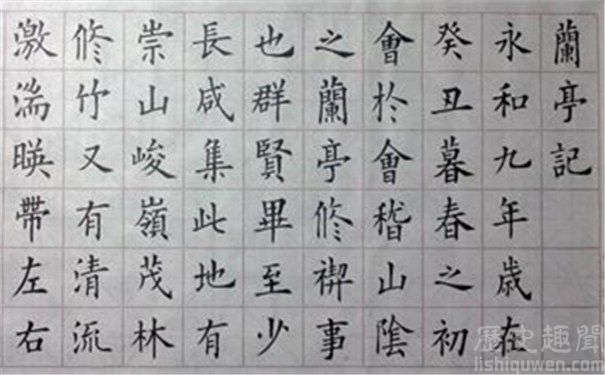 蘭亭記
永和九年歲在
癸丑暮春之初
會於會稽山陰
之蘭亭修禊事
也群賢畢至少
長咸集此地有
崇山峻嶺茂林
修竹又有清流
激湍暎帶左右
歷史趣聞
lishiquwen.com